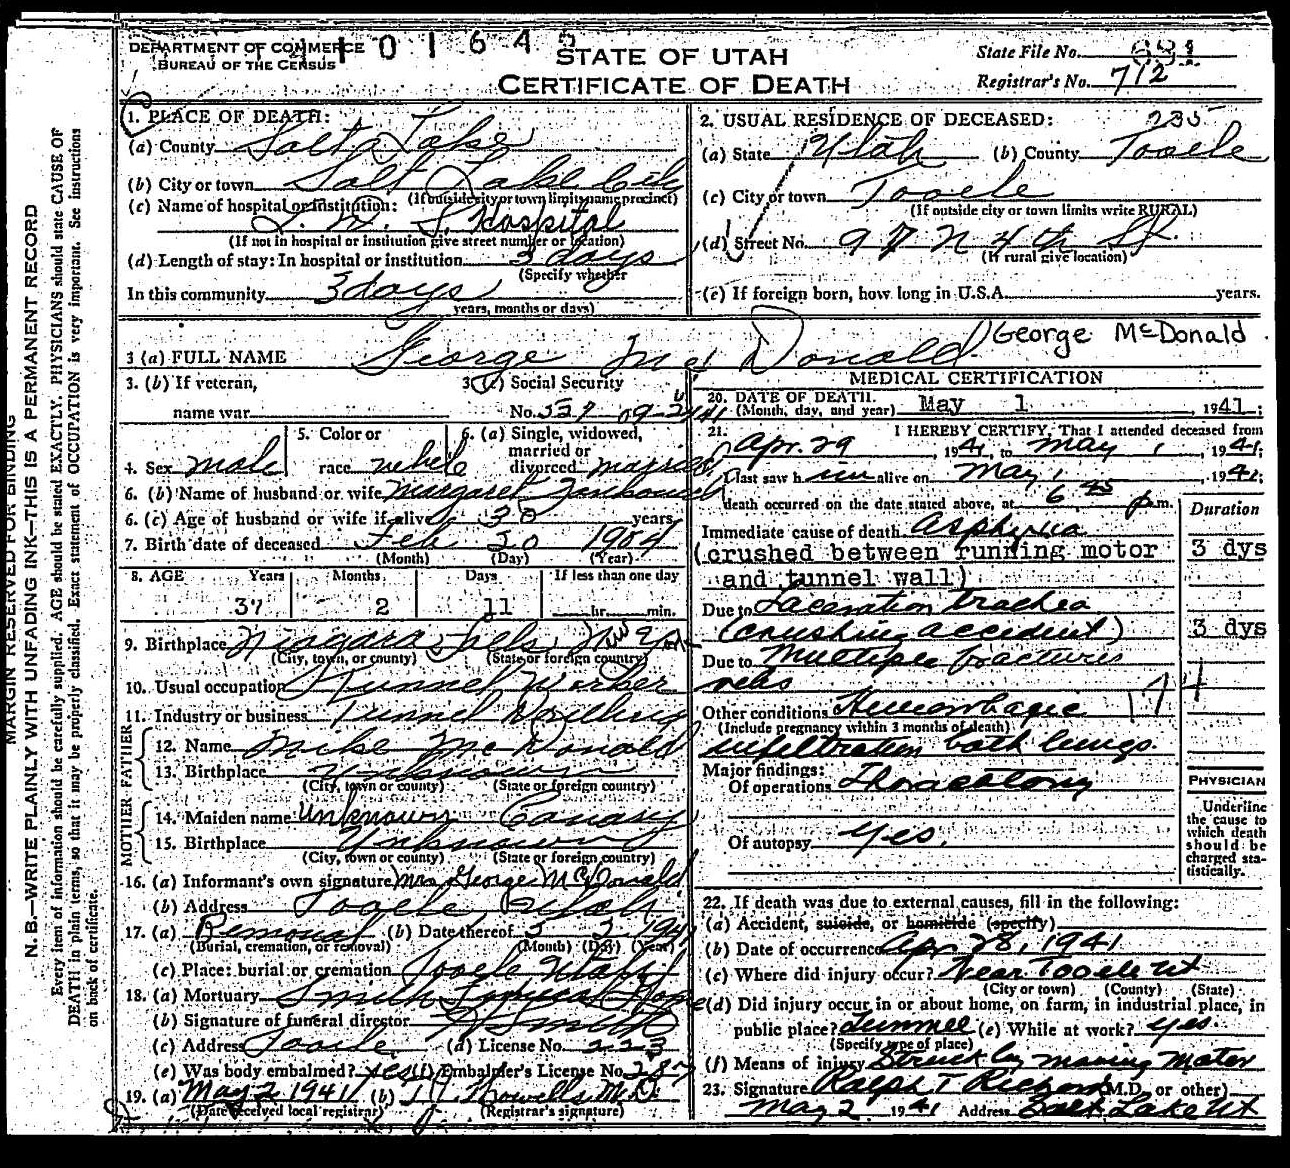 DEPARTMENT OF COMMERCE
BUREAU OF THE CENSUS
STATE OF UTAH
CERTIFICATE OF DEATH
State File No. 681
Registrar's No. 712
MARGIN RESERVED FOR BINDING
N. B.—WRITE PLAINLY WITH UNFADING INK—THIS IS A PERMANENT RECORD
Every item of information should be carefully supplied. AGE should be stated EXACTLY. PHYSICIANS should state CAUSE OF
DEATH in plain terms, so that it may be properly classified. Exact statement of OCCUPATION is very important. See instructions
on back of certificate.
1. PLACE OF DEATH:
(a) County Salt Lake
(b) City or town Salt Lake City
(If outside city or town limits name precinct)
(c) Name of hospital or institution:
Hospital
(If not in hospital or institution give street number or location)
(d) Length of stay: In hospital or institution 3 days
(Specify whether
In this community 3 days
years, months or days)
2. USUAL RESIDENCE OF DECEASED: 235
(a) State Utah (b) County Tooele
(c) City or town Tooele
(If outside city or town limits write RURAL)
(d) Street No. 97 N 4th St.
(If rural give location)
(e) If foreign born, how long in U.S.A. years.
3 (a) FULL NAME George Mc Donald George McDonald
3. (b) If veteran,
name war
3 (c) Social Security
No. 527 09
4. Sex male
5. Color or
race white
6. (a) Single, widowed,
married or
divorced married
6. (b) Name of husband or wife Margaret
6. (c) Age of husband or wife if alive 30 years
7. Birth date of deceased Feb 20 1904
(Month) (Day) (Year)
8. AGE Years Months Days If less than one day
37 2 11 hr. min.
9. Birthplace Niagara Falls New York
(City, town, or county) (State or foreign country)
10. Usual occupation Tunnel Worker
11. Industry or business Tunnel
FATHER
12. Name Mike McDonald
13. Birthplace Unknown
(City, town or county) (State or foreign country)
MOTHER
14. Maiden name Unknown Canary
15. Birthplace Unknown
(City, town or county) (State or foreign country)
16. (a) Informant's own signature Mrs George McDonald
(b) Address Tooele Utah
17. (a) Removal (b) Date thereof 5 3 1941
(Burial, cremation, or removal) (Month) (Day) (Year)
(c) Place: burial or cremation Tooele Utah
18. (a) Mortuary Smith Funeral Home
(b) Signature of funeral director Smith
(c) Address Tooele (d) License No. 223
(e) Was body embalmed? yes (f) Embalmer's License No. 287
19. (a) May 2 1941 (b) Howells M.D.
(Date received local registrar) (Registrar's signature)
MEDICAL CERTIFICATION
20. DATE OF DEATH.
(Month, day, and year) May 1, 1941;
21. I HEREBY CERTIFY, That I attended deceased from
Apr. 29, 1941, to May 1, 1941;
I last saw him alive on May 1, 1941;
death occurred on the date stated above, at 6 45 p.m.
Duration
Immediate cause of death Asphyxia
(crushed between running motor 3 dys
and tunnel wall)
Due to Laceration trachea
(crushing accident) 3 dys
Due to Multiple fractures
ribs
Other conditions Hemorrhagic 174
(Include pregnancy within 3 months of death)
infiltration both lungs.
Major findings:
Of operations Thoracotomy
Of autopsy yes.
PHYSICIAN
Underline
the cause to
which death
should be
charged sta-
tistically.
22. If death was due to external causes, fill in the following:
(a) Accident, suicide, or homicide (specify)
(b) Date of occurrence Apr 28, 1941
(c) Where did injury occur? Near Tooele Ut
(City or town) (County) (State)
(d) Did injury occur in or about home, on farm, in industrial place, in
public place? Tunnel (e) While at work? yes.
(Specify type of place)
(f) Means of injury Struck by moving motor
23. Signature Ralph T Richards (M.D. or other)
May 2 1941 Address Salt Lake Ut